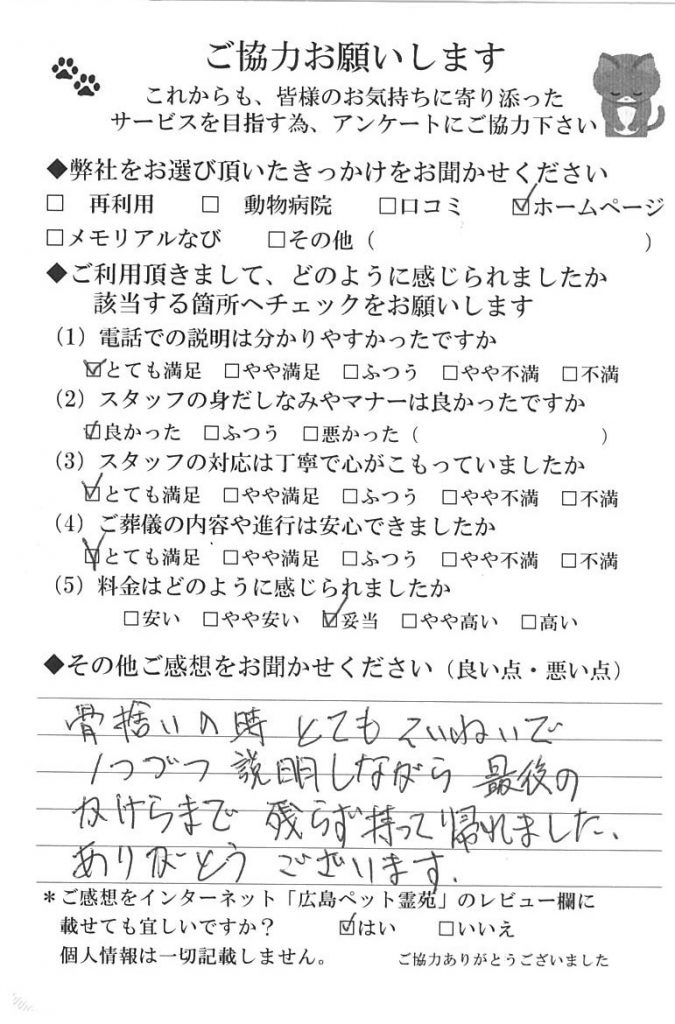 ご協力お願いします
これからも、皆様のお気持ちに寄り添った
サービスを目指す為、アンケートにご協力下さい
◆弊社をお選び頂いたきっかけをお聞かせください
□ 再利用 □ 動物病院 □口コミ ☑ホームページ
□メモリアルなび □その他（ ）
◆ご利用頂きまして、どのように感じられましたか
該当する箇所へチェックをお願いします
（1）電話での説明は分かりやすかったですか
☑とても満足 □やや満足 □ふつう □やや不満 □不満
（2）スタッフの身だしなみやマナーは良かったですか
☑良かった □ふつう □悪かった（ ）
（3）スタッフの対応は丁寧で心がこもっていましたか
☑とても満足 □やや満足 □ふつう □やや不満 □不満
（4）ご葬儀の内容や進行は安心できましたか
☑とても満足 □やや満足 □ふつう □やや不満 □不満
（5）料金はどのように感じられましたか
□安い □やや安い ☑妥当 □やや高い □高い
◆その他ご感想をお聞かせください（良い点・悪い点）
骨捨いの時 とても ていねいで
1つづつ 説明しながら 最後の
かけらまで 残らず持って帰れました、
ありがとう ございます.
＊ご感想をインターネット「広島ペット霊苑」のレビュー欄に
載せても宜しいですか？ ☑はい □いいえ
個人情報は一切記載しません。 ご協力ありがとうございました